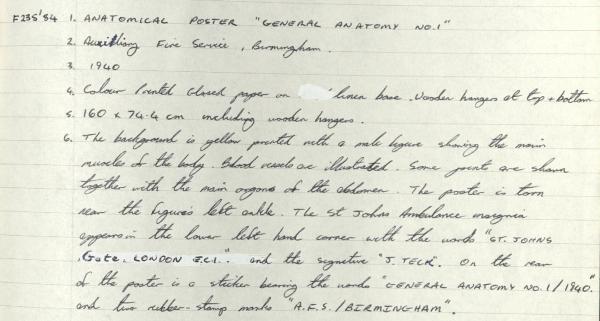 F235'84 1. ANATOMICAL POSTER "GENERAL ANATOMY NO.1"
2. Auxiliary Fire Service, Birmingham.
3. 1940
4. Colour Printed Glazed paper on linen base. Wooden hangers at top + bottom
5. 160 x 74.4 cm including wooden hangers.
6. The background is yellow printed with a male figure showing the main
muscles of the body. Blood vessels are illustrated. Some joints are shown
together with the main organs of the abdomen. The poster is torn
near the figure's left ankle. The St Johns Ambulance insignia
appears in the lower left hand corner with the words "ST. JOHNS
Gate, LONDON E.C.1." and the signature "J. TECK". On the rear
of the poster is a sticker bearing the words "GENERAL ANATOMY NO.1/1940."
and two rubber-stamp marks "A.F.S./BIRMINGHAM".